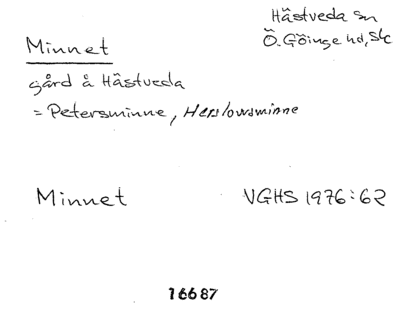 Hästveda sn
Ö. Göinge hd, Sk
Minnet
gård å Hästveda
= Petersminne, Herslowsminne
Minnet VGHS 1976:62
16687